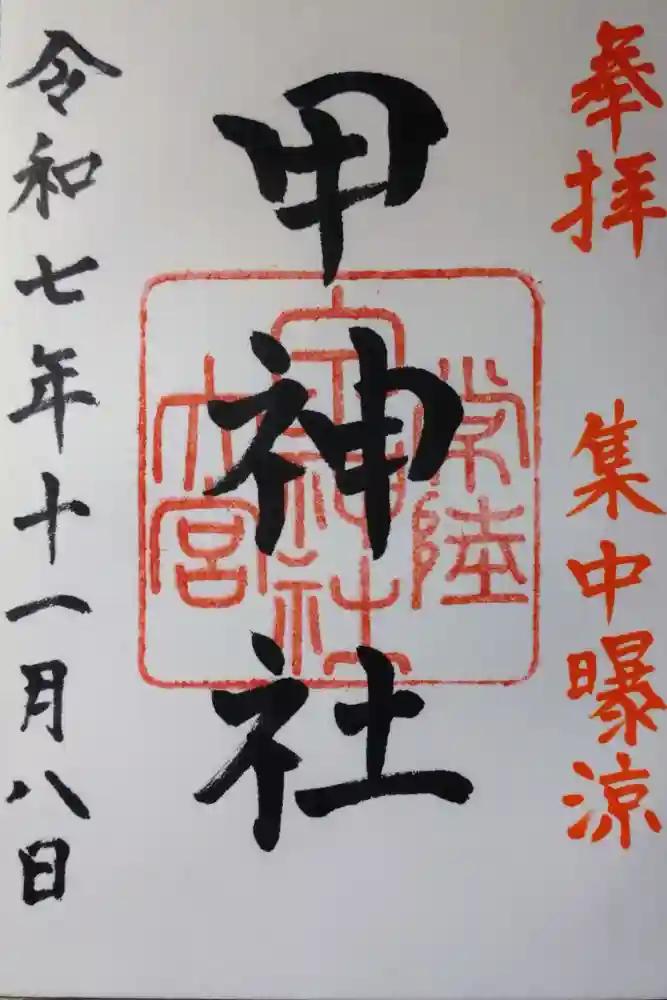 奉拝　集中曝涼
甲神社
常陸
甲神社
大宮
令和七年十一月八日